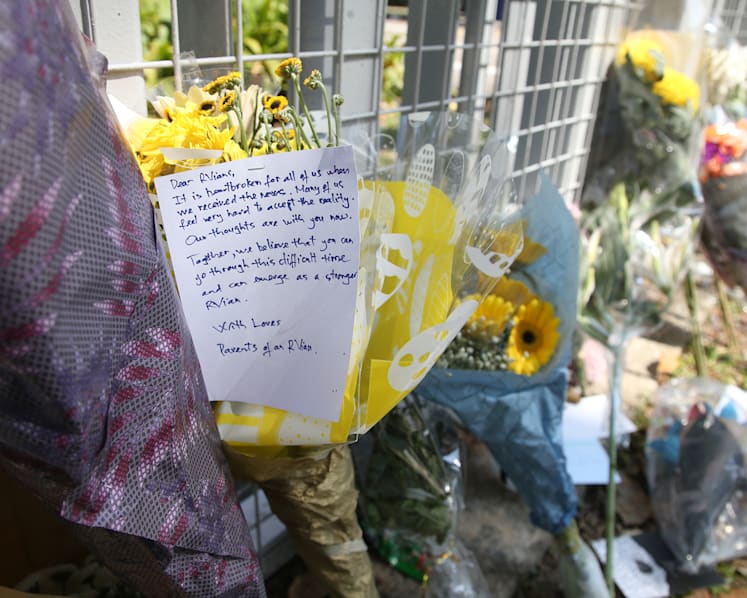 Dear RVians,
It is heartbroken for all of us when
we received the news. Many of us
feel very hard to accept the reality.
Our thoughts are with you now.
Together, we believe that you can
go through this difficult time
and can emerge as a stronger
RVian.
With Loves
Parents of an RVian.